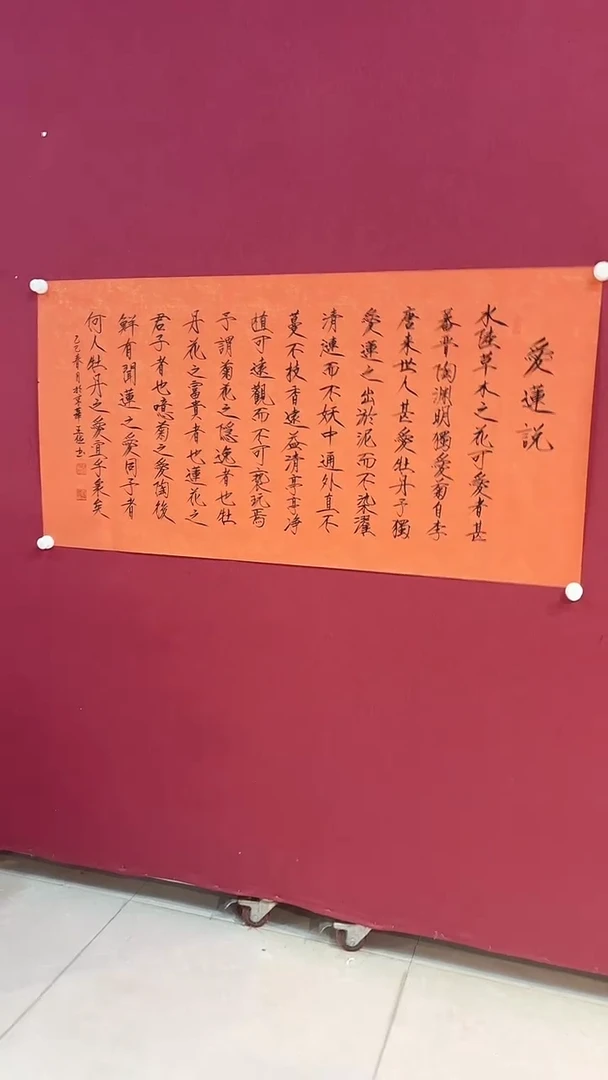 愛蓮説
水陸草木之花可愛者甚
蕃晉陶淵明獨愛菊自李
唐来世人甚愛牡丹予獨
愛蓮之出淤泥而不染濯
清漣而不妖中通外直不
蔓不枝香遠益清亭亭净
植可遠觀而不可褻玩焉
予謂菊花之隠逸者也牡
丹花之富貴者也蓮花之
君子者也噫菊之愛陶後
鮮有聞蓮之愛同予者
何人牡丹之愛宜乎衆矣
乙巳春月於